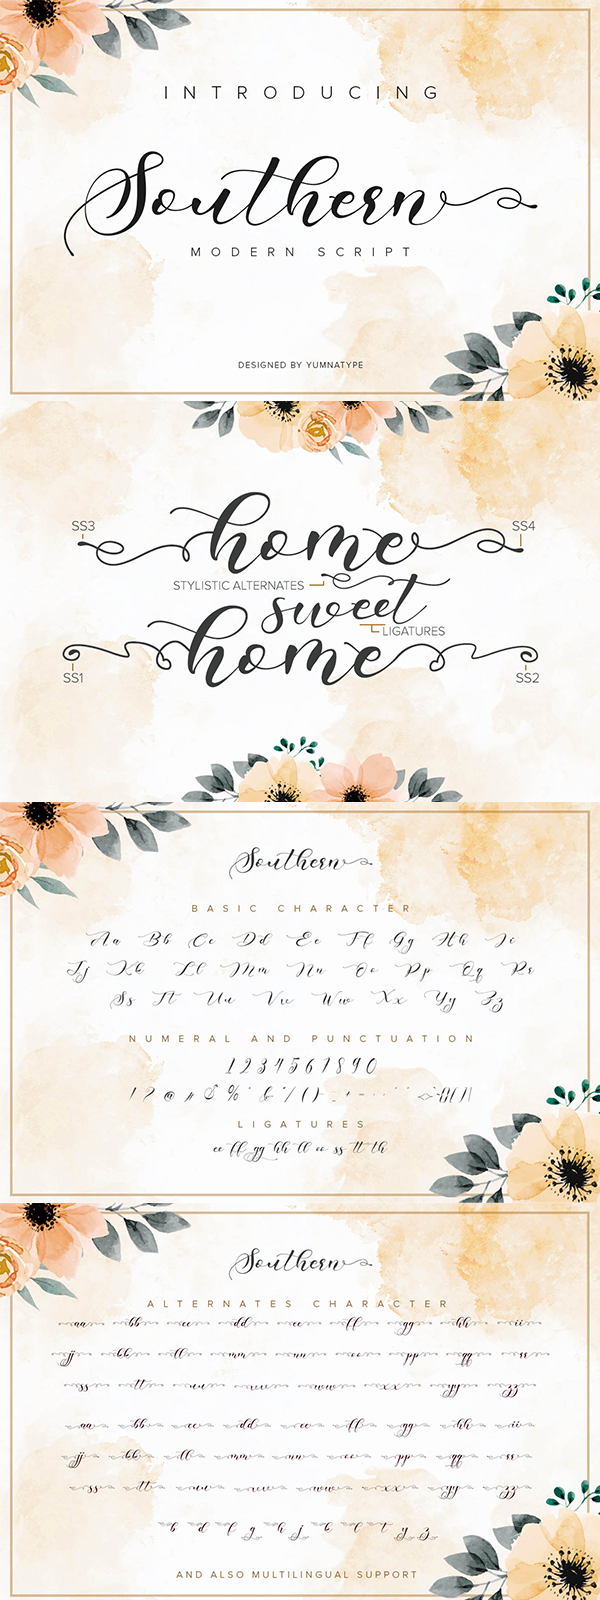 INTRODUCING
Southern
MODERN SCRIPT
DESIGNED BY YUMNATYPE
SS3
home
SS4
STYLISTIC ALTERNATES
sweet
LIGATURES
home
SS1
SS2
Southern
BASIC CHARACTER
Aa Bb Cc Dd Ee Ff Gg Hh Ic
Jj Kk Ll Mm Nn Oo Pp Qq Rr
Ss Tt Uu Vv Ww Xx Yy Zz
NUMERAL AND PUNCTUATION
1234567890
LIGATURES
ee ff gg hh ll oo ss tt th
Southern
ALTERNATES CHARACTER
aa bb cc dd ee ff gg hh ii
jj kk ll mm nn oo pp qq
ss tt uu vv ww xx yy zz
aa bb cc dd ee ff gg hh ii
jj kk ll mm nn oo pp qq
ss tt uu vv ww xx yy zz
b d f g h j k l t y z
AND ALSO MULTILINGUAL SUPPORT